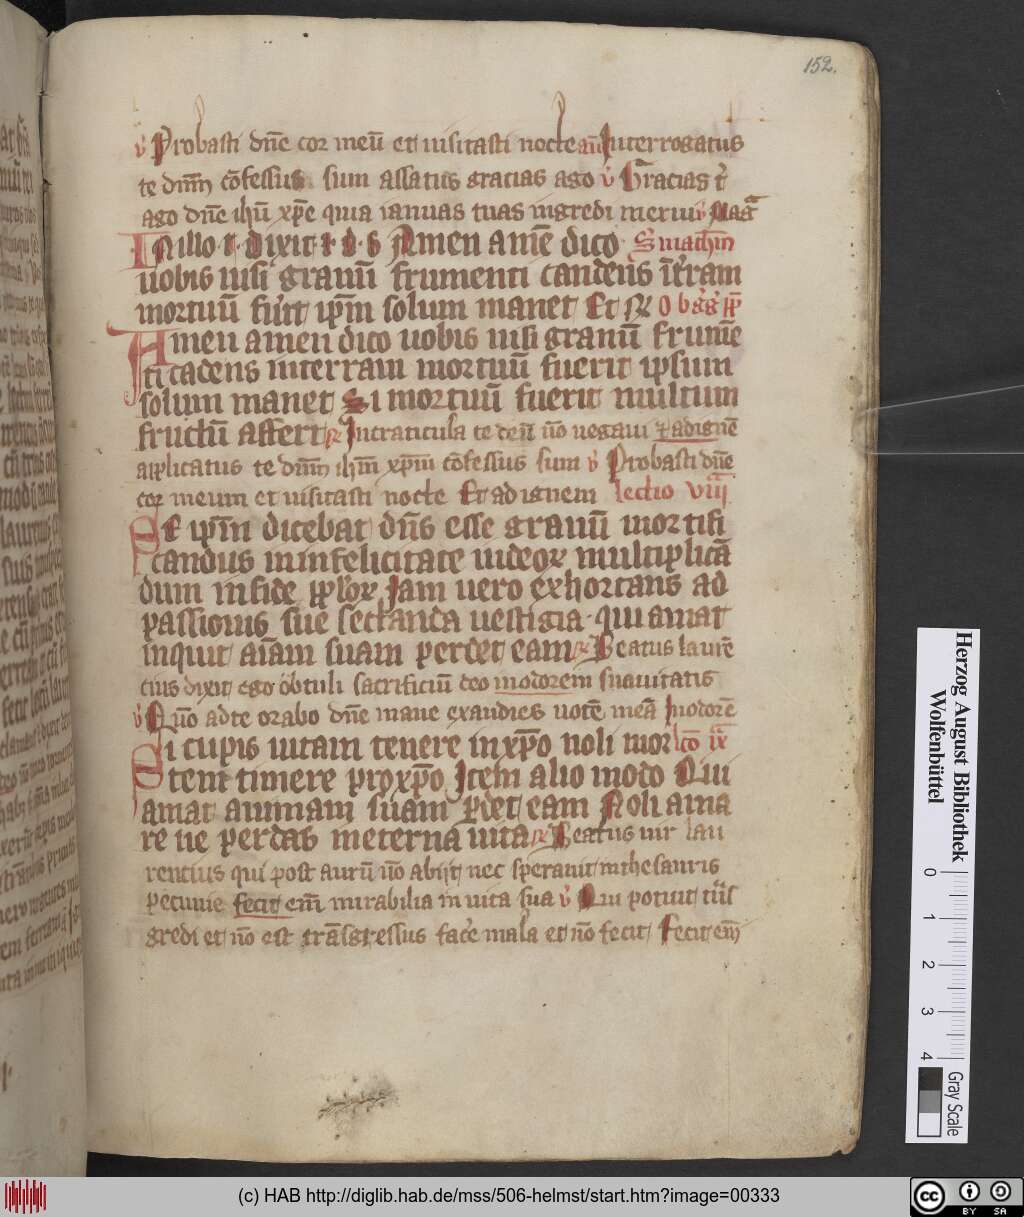 152.
v̉ Probasti dn̄e cor meū et uisitasti nocte an̄ Interrogatus
te dn̄m cōfessus sum assatus gracias ago v̉ Gracias t'
ago dn̄e ih̄u xp̄e quia ianuas tuas ingredi merui
In illo t dixit i d s Amen amē dico
uobis nisi granū frumenti cadens ī t'ram
mortuū fu'it ip̄m solum manet Et
Amen amen dico uobis nisi granū frumē
ti cadens in terram mortuū fuerit ipsum
solum manet Si mortuū fuerit multum
fructū affert In craticula te deū nō negaui & ad ignē
applicatus te dn̄m ih̄m xp̄m cōfessus sum v̉ Probasti dn̄e
cor meum et uisitasti nocte Et ad ignem lectio viii
Se ip̄m dicebat dn̄s esse granū mortifi
candus in infelicitate iudeoꝝ multiplicā
dum in fide pp̄loꝝ Jam uero exhortans ad
passionis sue sectanda uestigia qui amat
inquit aīam suam perdet eam Beatus laurē
cius dixit ego obtuli sacrificiū deo in odorem suauitatis
v̉ Quō ad te orabo dn̄e mane exaudies uocē meā In odorē
Si cupis uitam tenere in xp̄o noli mor lc̄o ix
tem timere pro xp̄o Item alio modo Qui
amat animam suam ꝑdet eam Noli ama
re ne perdas in eterna uita Beatus uir lau
rentius qui post aurū nō abiit nec sperauit in thesauris
pecunie fecit em̄ mirabilia in uita sua v̉ Qui potuit t͛ns
gredi et nō est trāsgressus fac'e mala et nō fecit Fecit em̄
Herzog August Bibliothek
Wolfenbüttel
0 1 2 3 4
Gray Scale
(c) HAB http://diglib.hab.de/mss/506-helmst/start.htm?image=00333
cc BY SA